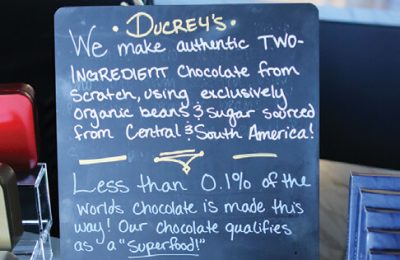 • DUCREY'S •
We make authentic TWO-
INGREDIENT chocolate from
scratch, using exclusively
organic beans & sugar sourced
from Central & South America!
Less than 0.1% of the
worlds chocolate is made this
way! Our chocolate qualifies
as a "superfood!"